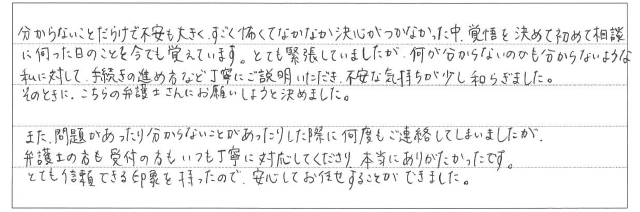 分からないことだらけで不安も大きく、すごく怖くてなかなか決心がつかなかった中、覚悟を決めて初めて相談
に伺った日のことを今でも覚えています。とても緊張していましたが、何が分からないのかも分からないような
私に対して、手続きの進め方など丁寧にご説明いただき、不安な気持ちが少し和らぎました。
そのときに、こちらの弁護士さんにお願いしようと決めました。
また、問題があったり分からないことがあったりした際に何度もご連絡してしまいましたが、
弁護士の方も受付の方もいつも丁寧に対応してくださり、本当にありがたかったです。
とても信頼できる印象を持ったので、安心してお任せすることができました。